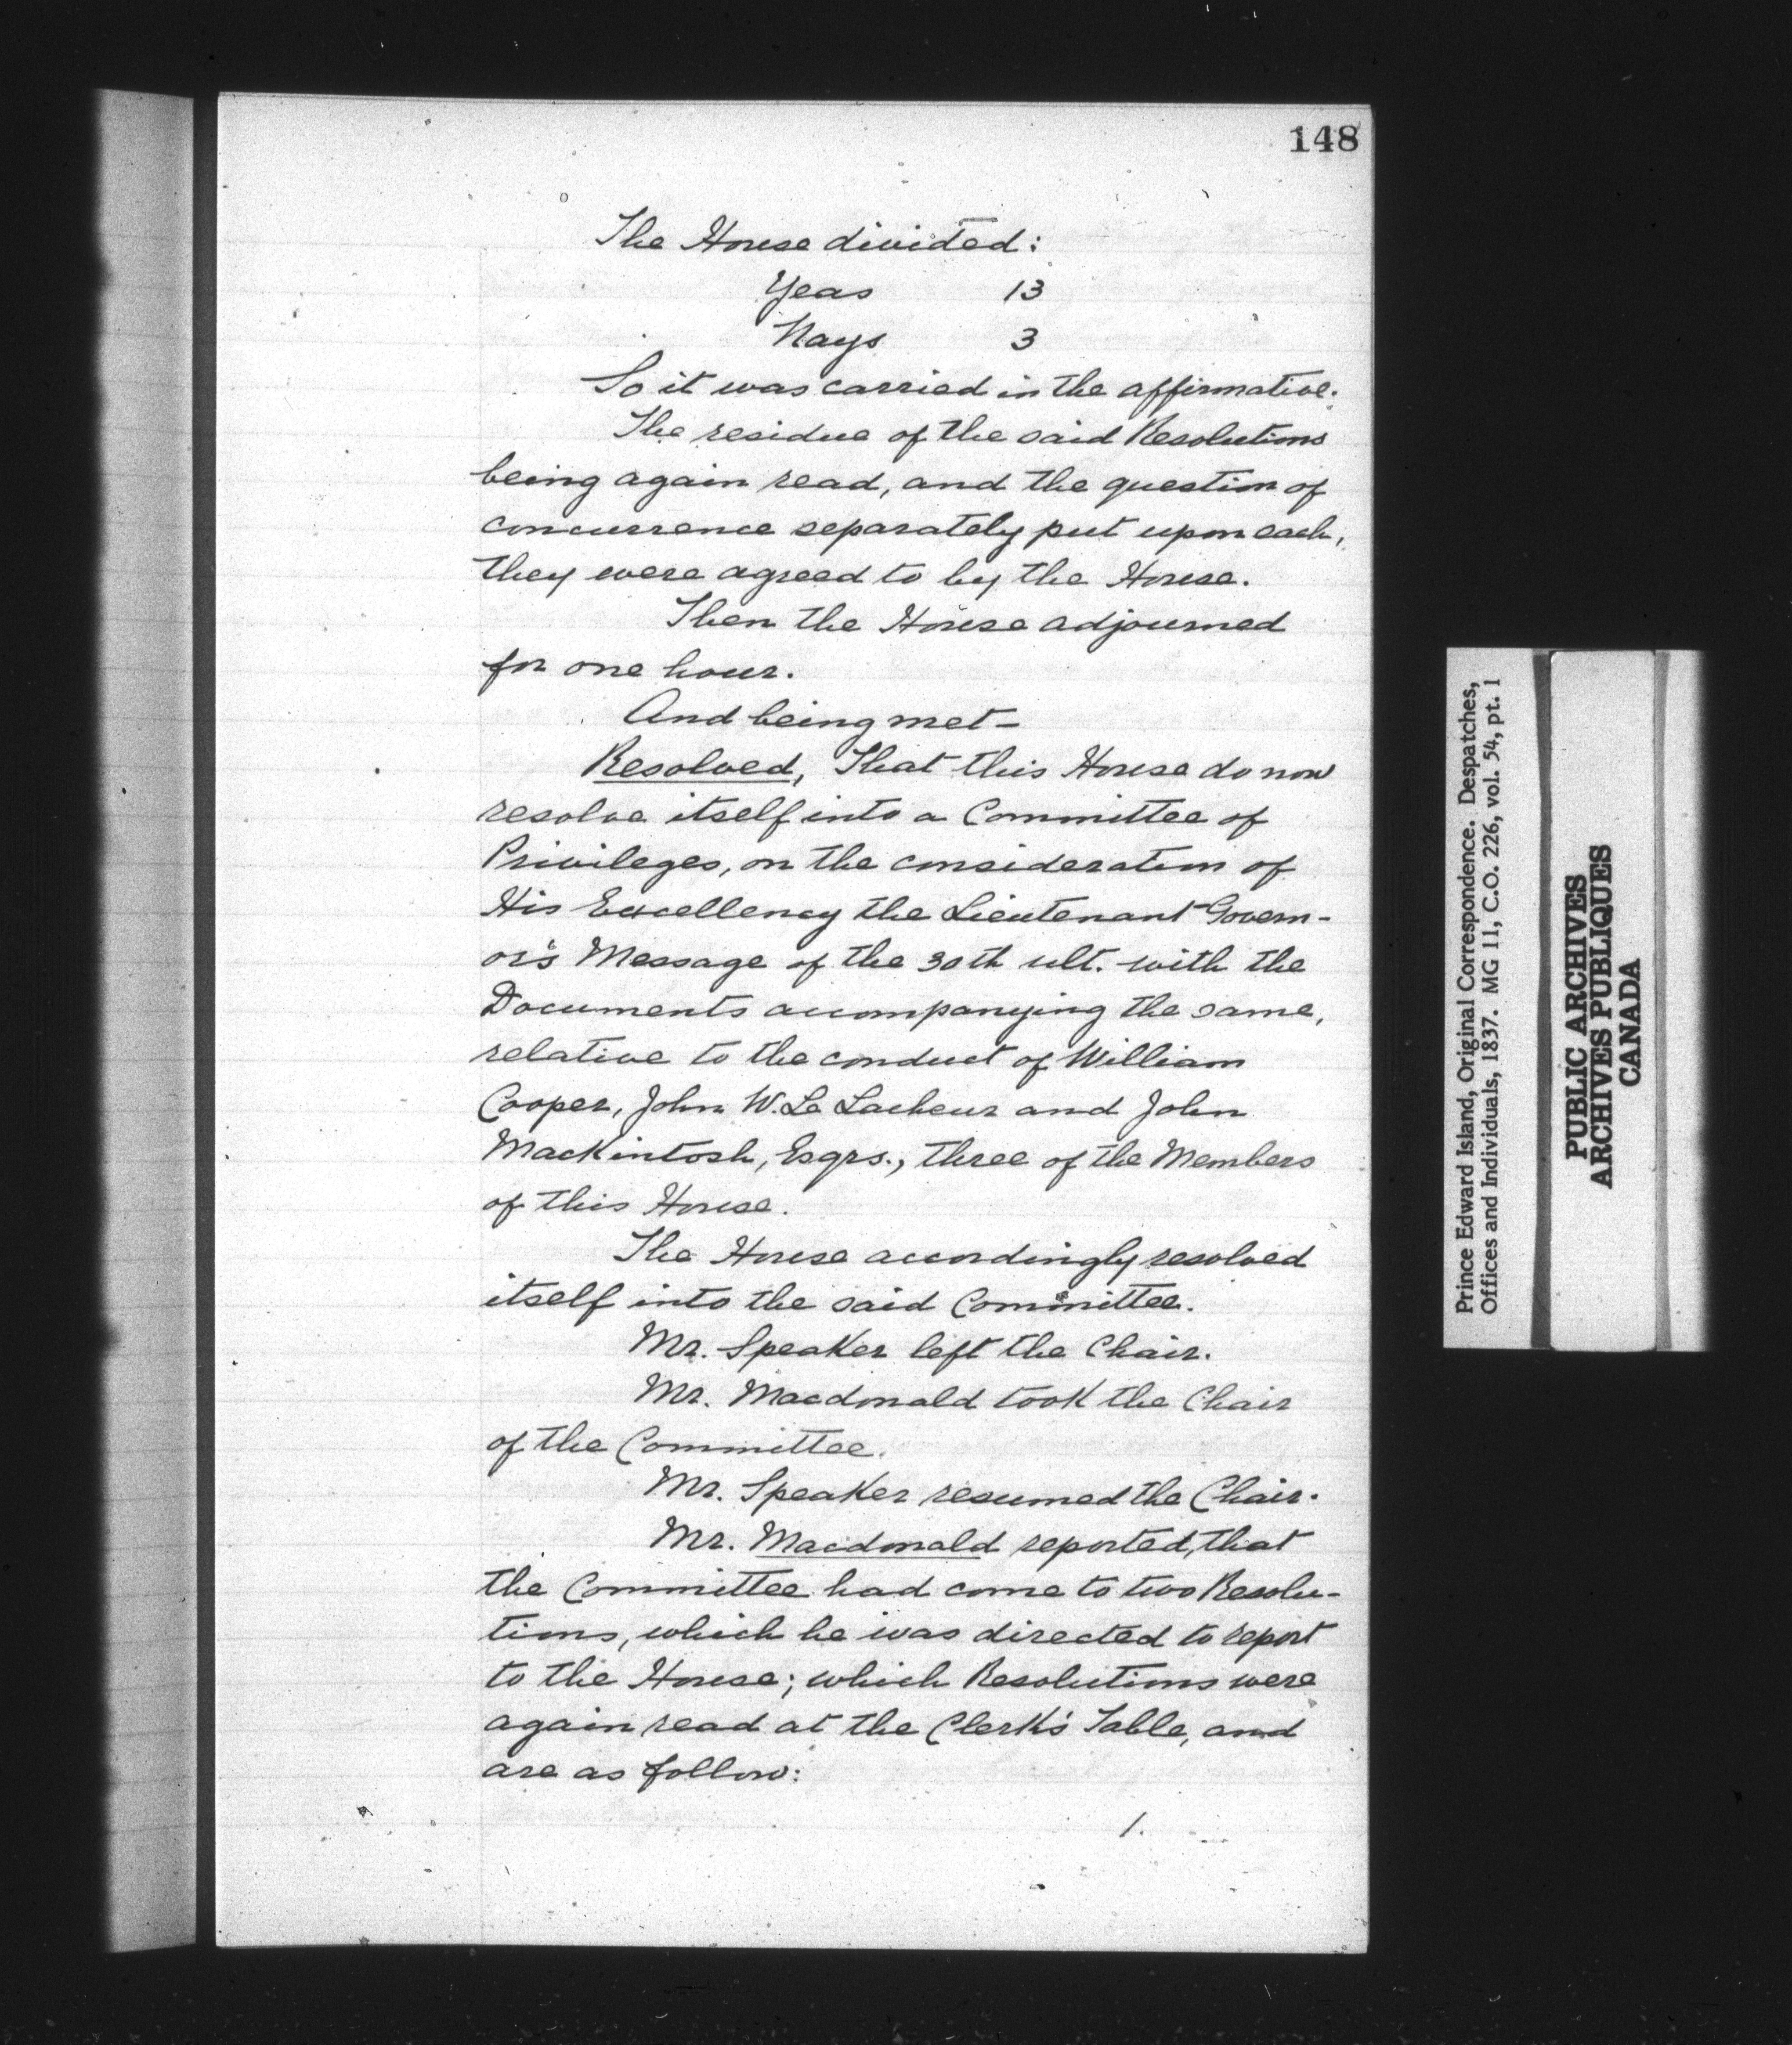 148
The House divided:
Yeas 13
Nays 3
So it was carried in the affirmative.
The residue of the said Resolutions
being again read, and the question of
concurrence separately put upon each,
they were agreed to by the House.
Then the House adjourned
for one hour.
And being met-
Resolved, That this House do now
resolve itself into a Committee of
Privileges, on the consideration of
His Excellency the Lieutenant Govern-
or's Message of the 30th ult. with the
Documents accompanying the same,
relative to the conduct of William
Cooper, John W. Le Lacheur and John
Mackintosh, Esqrs., three of the Members
of this House.
The House accordingly resolved
itself into the said Committee.
Mr. Speaker left the Chair.
Mr. Macdonald took the Chair
of the Committee.
Mr. Speaker resumed the Chair.
Mr. Macdonald reported, that
the Committee had come to two Resolu-
tions, which he was directed to report
to the House; which Resolutions were
again read at the Clerk's Table, and
are as follow:
1.
Prince Edward Island, Original Correspondence. Despatches,
Offices and Individuals, 1837. MG 11, C.O. 226, vol. 54, pt. 1
PUBLIC ARCHIVES
ARCHIVES PUBLIQUES
CANADA